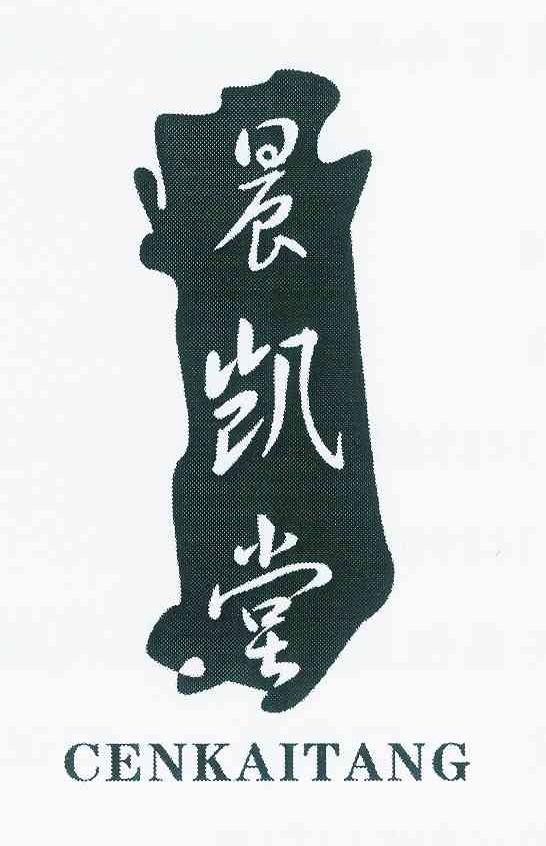 晨凯堂
CENKAITANG